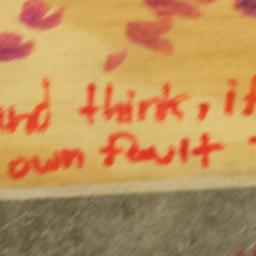 and think, it
own fault